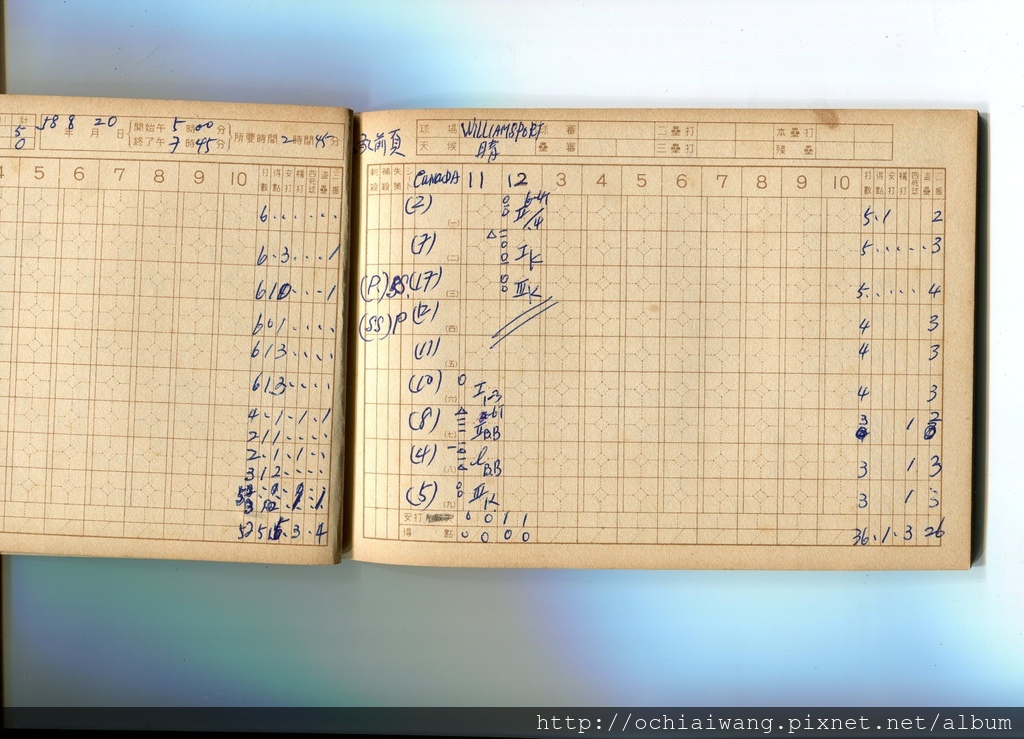 計
5
0
58 年 8 月 20 日
開始午 5 時 00 分
終了午 7 時 45 分
所要時間 2 時間 45 分
4 5 6 7 8 9 10 打數 得點 安打 犧打 四死球 盜壘 三振
6 . . . . . .
6 . 3 . . . 1
6 1 0 . . . 1
6 0 1 . . . .
6 1 3 . . . .
6 1 3 . . . .
4 . 1 . 1 . 1
2 1 1 . . . .
2 . 1 . 1 . .
3 1 2 . . . .
球場 WILLIAMSPORT 球審 二壘打 本壘打
天候 晴 壘審 三壘打 殘壘
前頁
刺殺 補殺 失策 CANADA 11 12 3 4 5 6 7 8 9 10 打數 得點 安打 犧打 四死球 盜壘 三振
(2) (一) 6-4T II 1.4 5 . 1 2
(7) (二) I K 5 . . . . . 3
(P.) SS. (17) (三) III K 5 . . . . . 4
(SS) P (12) (四) 4 3
(11) (五) 4 3
(10) (六) I 1-3 4 3
(8) (七) II B.B 3 1 2
(4) (八) B.B 3 1 3
(5) (九) II K 3 1 3
安打 0 0 1 1
得點 0 0 0 0 36 . 1 . 3 26
http://ochiaiwang.pixnet.net/album